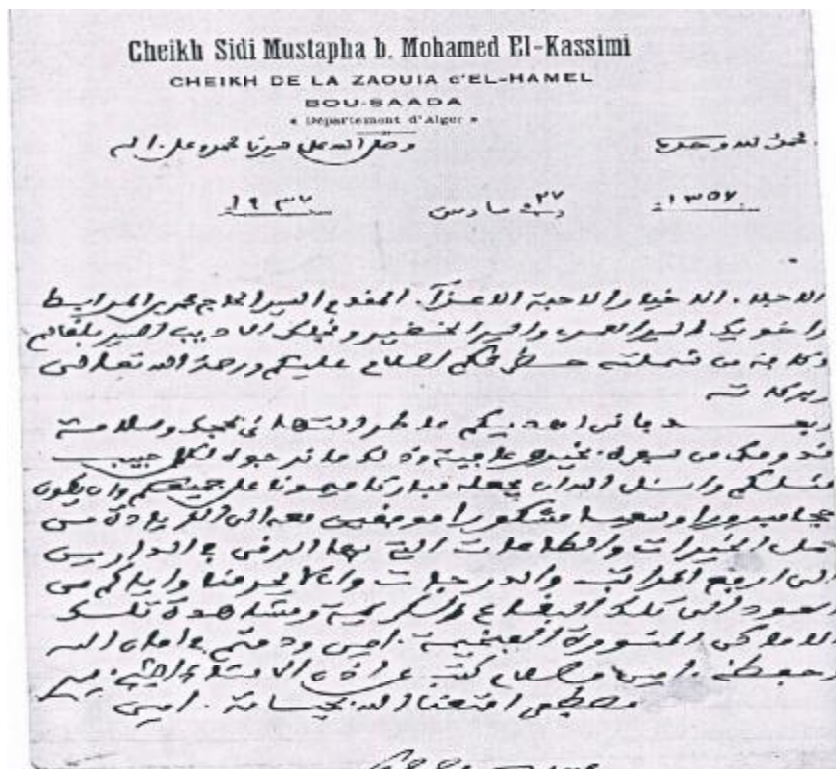 Cheikh Sidi Mustapha b. Mohamed El-Kassimi
CHEIKH DE LA ZAOUIA d'EL-HAMEL
BOU-SAADA
« Département d'Alger »
الحمد لله وحده وصلى الله على سيدنا محمد وعلى آله
١٣٥٧ ٢٧ مارس ١٩٣٧
الاحبة الاعزاء المقدم السيد الحاج المرابط
واخويك السيد والسيد الاديب السيد بلقاسم
وكافة من شملته السلام عليكم ورحمة الله تعالى
وبركاته
وبعد فاني اهديكم التهاني بحجكم وسلامة
قدومكم من بخير وعافية لكل حبيب
مثلكم واسئل الله ان يجعله مباركا ميمونا على جميعكم وان يكون
حجا مبرورا وسعيا مشكورا موفقين معه الى الزيادة من
عمل الخيرات والطاعات التي بها الرقي في الدارين
الى ارفع المراتب والدرجات وان لا يحرمنا واياكم من
العود الى تلك البقاع الكريمة ومشاهدة تلك
الاماكن المنورة امين ودمتم في امان الله
وحفظه والسلام كتب عن اذن الاستاذ الشيخ سيدي
مصطفى امتعنا الله بحياته امين